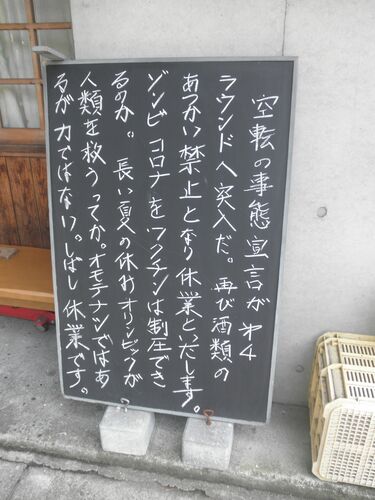 空転の事態宣言が才4
ラウンドへ突入だ。再び酒類の
あつかい禁止となり休業といたします。
ゾンビコロナをワクチンは制圧でき
るのか。長い夏の休みオリンピックが
人類を救うってか。オモテナシではあ
るが力ではない。しばし休業です。